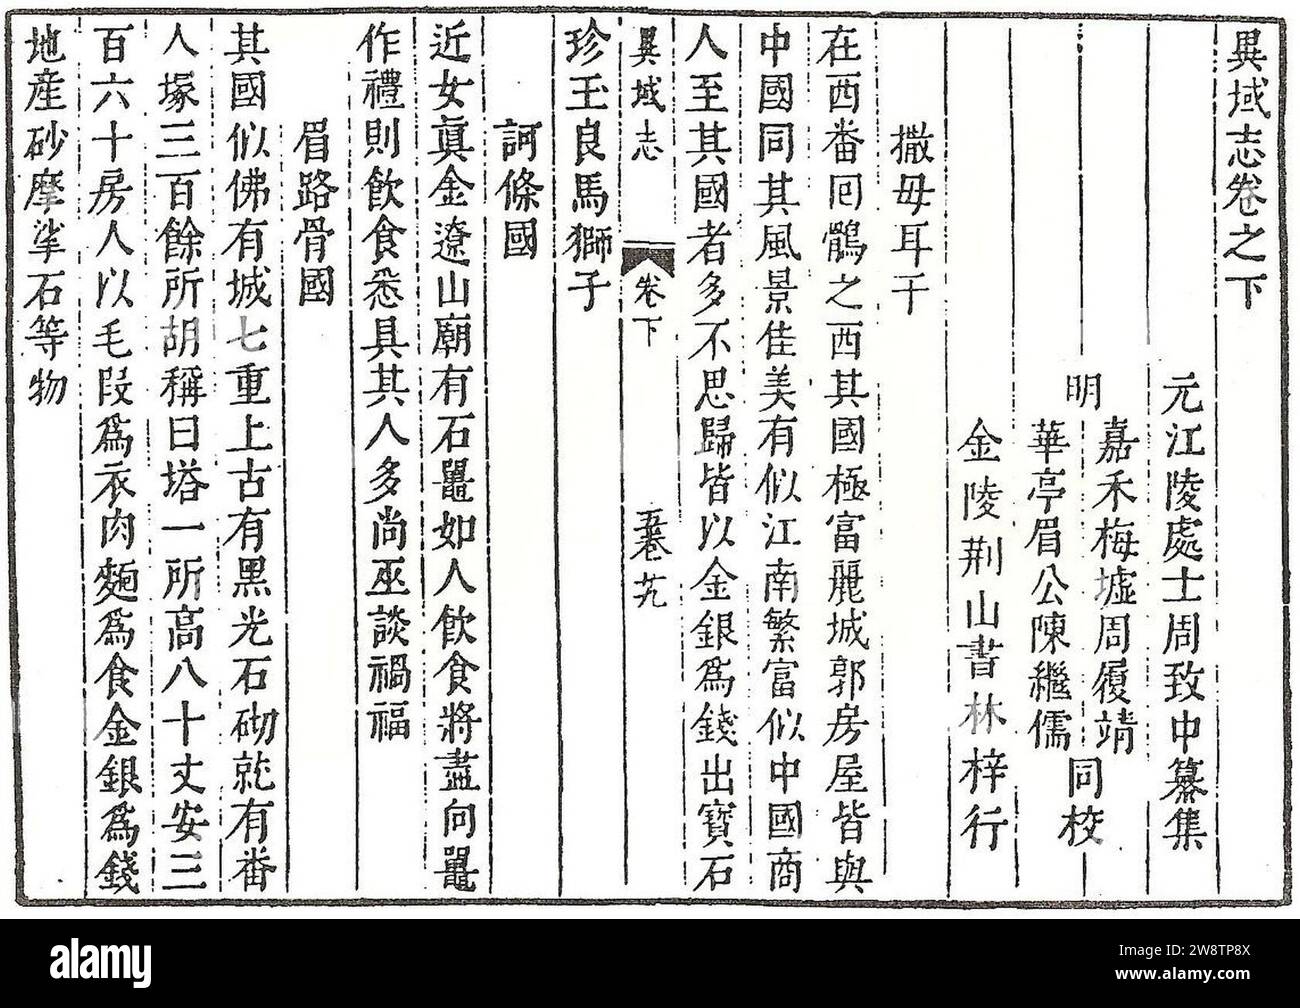 異域志卷之下
元江陵處士周致中纂集
明
嘉禾梅墟周履靖
華亭眉公陳繼儒
同校
金陵荆山書林梓行
撒毋耳干
在西番囘鶻之西其國極富麗城郭房屋皆與
中國同其風景佳美有似江南繁富似中國商
人至其國者多不思歸皆以金銀爲錢出寶石
異域志
卷下
珍玉良馬獅子
訶條國
近女真金遼山廟有石鼉如人飲食將盡向鼉
作禮則飲食悉具其人多尚巫談禍福
眉路骨國
其國似佛有城七重上古有黑光石砌就有番
人塚三百餘所胡稱曰塔一所高八十丈安三
百六十房人以毛段爲衣肉麵爲食金銀爲錢
地產砂摩挲石等物
alamy
Image ID: 2W8TP8X
www.alamy.com